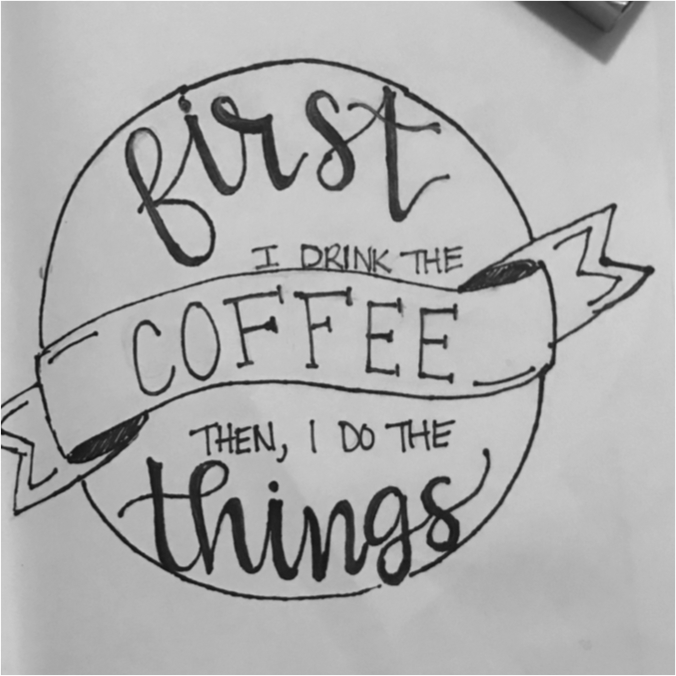 first
I DRINK THE
COFFEE
THEN, I DO THE
things